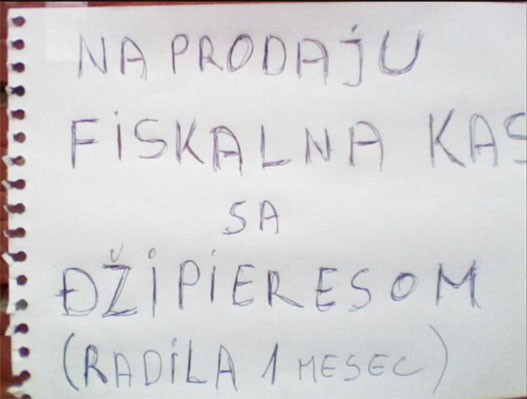 NA PRODAJU
FISKALNA KAS
SA
ĐŽIPIERESOM
(RADILA 1 MESEC)